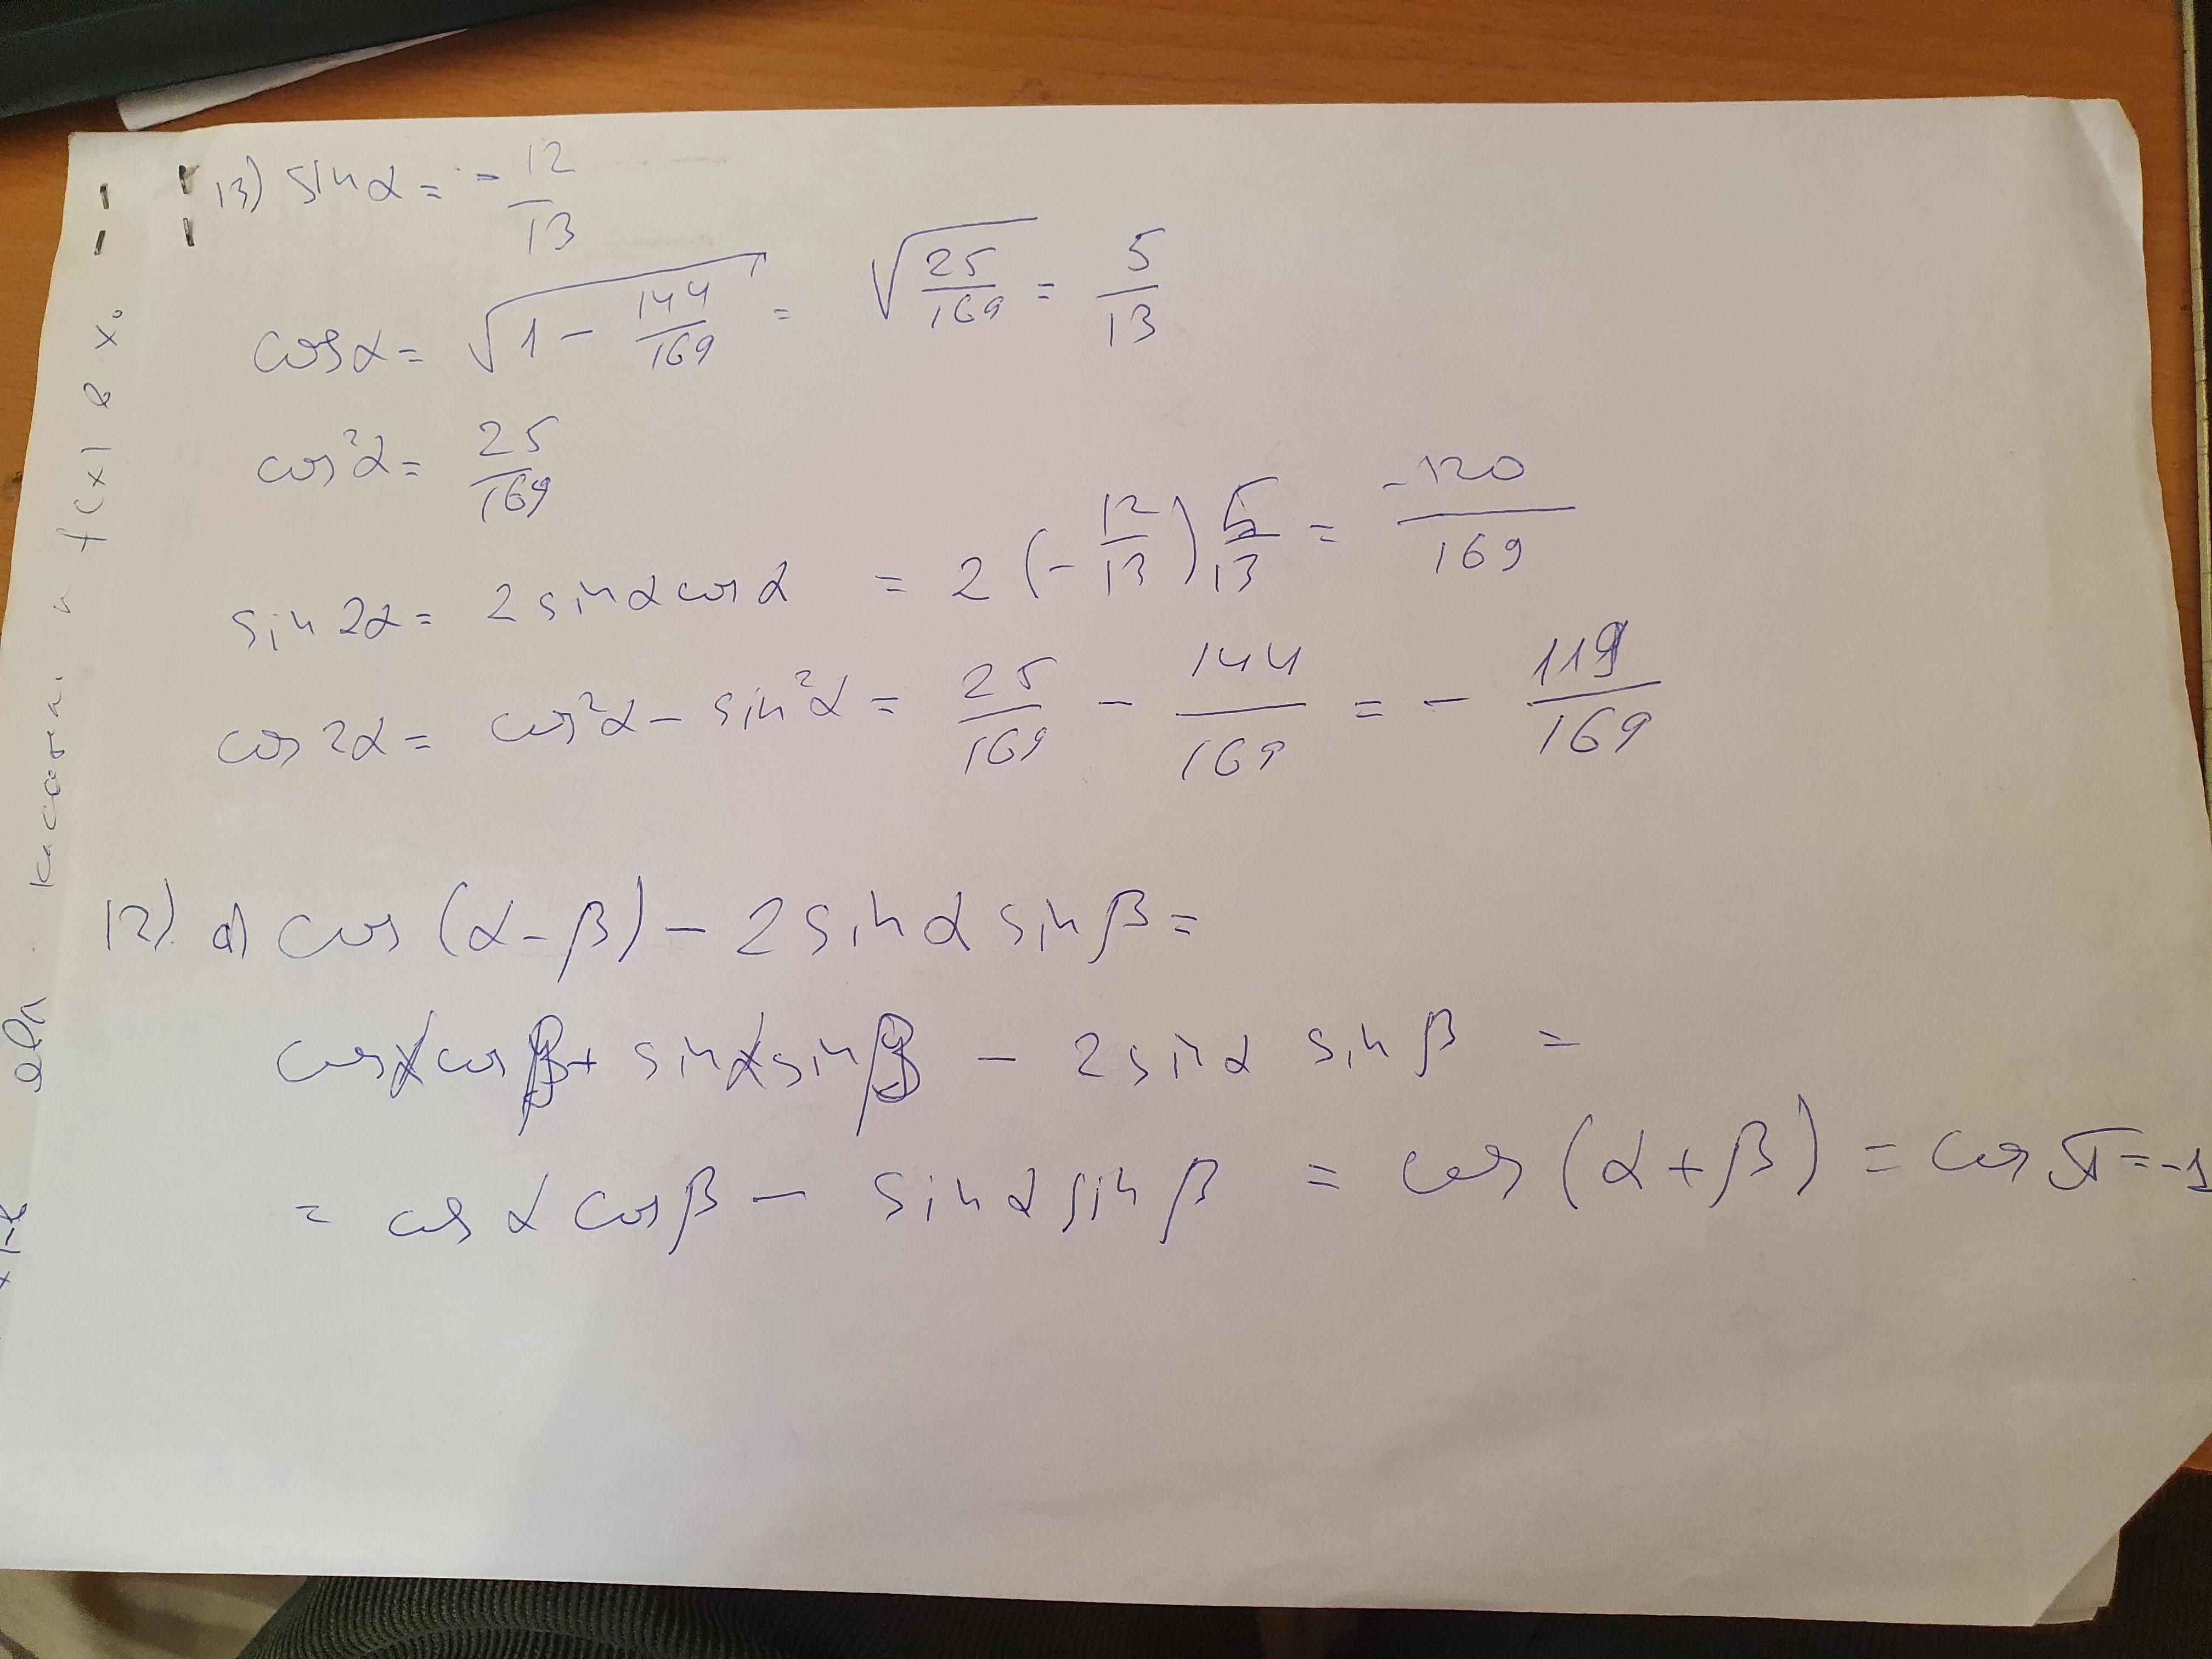 13) sin α = - 12/13
cos α = √(1 - 144/169) = √(25/169) = 5/13
cos²α = 25/169
sin 2α = 2 sin α cos α = 2 (- 12/13) 5/13 = -120/169
cos 2α = cos²α - sin²α = 25/169 - 144/169 = - 119/169
12) a) cos (α - β) - 2 sin α sin β =
cos α cos β + sin α sin β - 2 sin α sin β =
= cos α cos β - sin α sin β = cos (α + β) = cos π = -1
f(x) в x₀